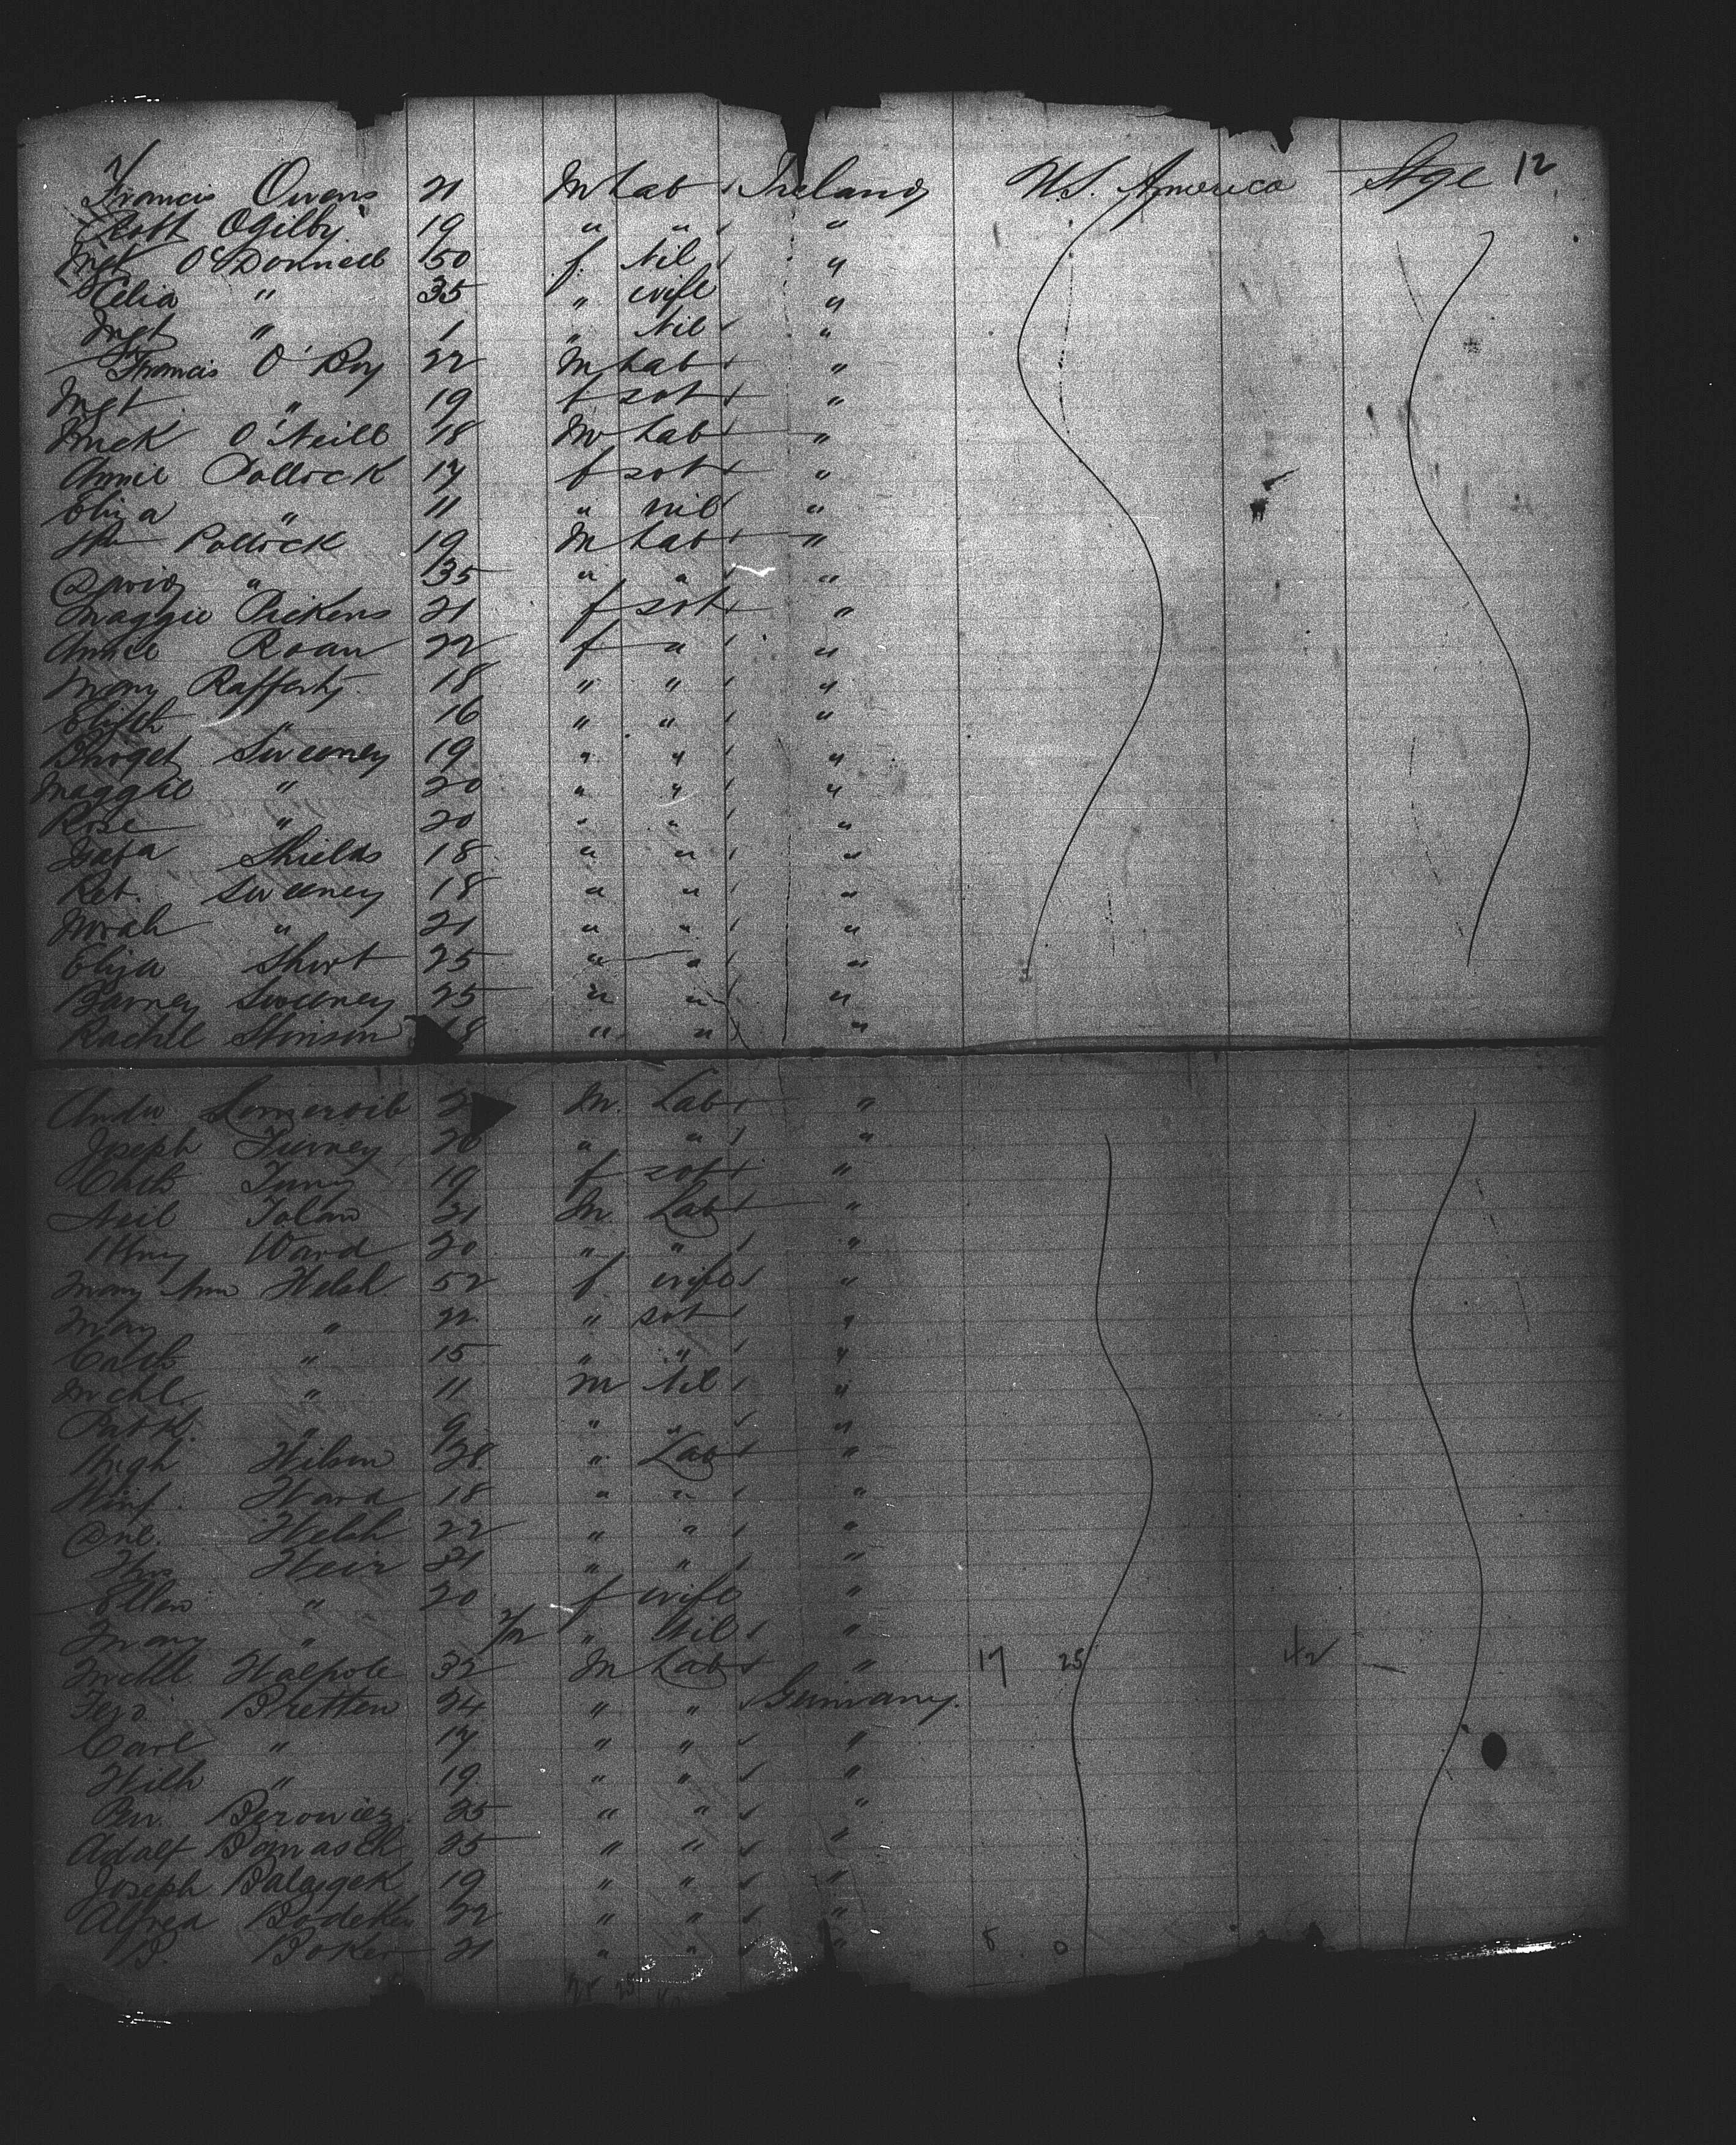 12
Francis Owens 21 M Lab Ireland U.S. America Stge
Robt Ogilby 19 " " "
Mgt O'Donnell 50 f Nil "
Celia " 35 " wife "
Mgt " 1 " Nil "
Francis O'Boy 22 M Lab "
Mgt " 19 f sot "
Mick O'Neill 18 M Lab "
Annie Pollock 17 f sot "
Eliza " 11 " nil "
Pollock 19 M Lab "
David " 35 " " "
Maggie Pickens 21 f sot "
Annie Roan 22 f " "
Mary Rafferty 18 " " "
Elizth " 16 " " "
Bridget Sweeney 19 " " "
Maggie " 20 " " "
Rose " 20 " " "
Isab'a Shields 18 " " "
Reb. Sweeney 18 " " "
Norah " 21 " " "
Eliza Short 25 " " "
Barney Sweeney 25 " " "
Rachel Stinson 18 " " "
Andw Somervile M. Lab "
Joseph Turney 20 " " "
Cath 19 f sot "
Neil Tolan 21 M Lab "
Hny Ward 20 " " "
Mary Ann Welsh 52 f wife "
May " 22 " sot "
Cath " 15 " " "
Mchl " 11 M Nil "
Patk. " 9 " " "
Hugh Wilson 38 " Lab "
Winf. Ward 18 " " "
Dnl. Welsh 22 " " "
Weir 31 " " "
Ellen " 20 f wife "
Mary " " Nil "
Michl Walpole 32 M Lab " 17 25 42
Bretten 24 " " Germany.
Carl " 17 " " "
Wilh " 19 " " "
25 " " "
Adolf 25 " " "
Joseph 19 " " "
Alfred Bodeker 22 " " "
B. Boker 21 " " " 8 0